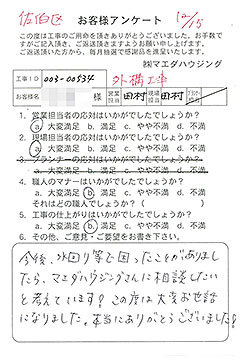 佐伯区 お客様アンケート 10/15
この度は工事のご用命を頂きありがとうございました。お手数で
すがご記入頂き、ご返送頂きますようお願い申し上げます。
ご返送頂いた方から、毎月抽選で感謝品を進呈いたします。
㈱マエダハウジング
工事ID 003-00534 外構工事
お客様名 様 営業担当 田村 現場担当 田村
1. 営業担当者の応対はいかがでしたでしょうか?
a. 大変満足 b. 満足 c. やや不満 d. 不満
2. 現場担当者の応対はいかがでしたでしょうか?
a. 大変満足 b. 満足 c. やや不満 d. 不満
3. プランナーの応対はいかがでしたでしょうか?
a. 大変満足 b. 満足 c. やや不満 d. 不満
4. 職人のマナーはいかがでしたでしょうか?
a. 大変満足 b. 満足 c. やや不満 d. 不満
それはどの職人でしょうか?( )
5. 工事の仕上がりはいかがでしたでしょうか?
a. 大変満足 b. 満足 c. やや不満 d. 不満
6. その他、ご意見・ご要望をお書き下さい。
今後、水回り等で困ったことがありまし
たら、マエダハウジングさんに相談したい
と考えています!この度は大変お世話
になりました。本当にありがとうございました!